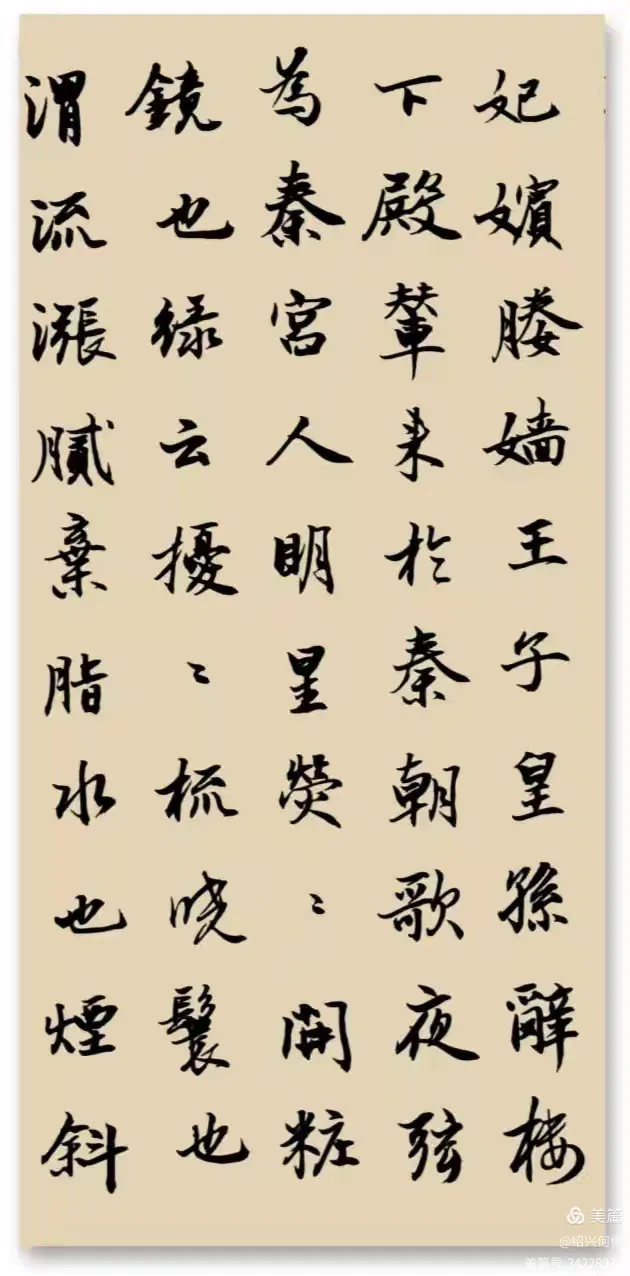 妃嬪媵嬙王子皇孫辭楼
下殿輦来於秦朝歌夜弦
為秦宮人明星熒〻開粧
鏡也緑云擾〻梳晓鬟也
渭流漲膩棄脂水也煙斜
美篇
@绍兴何
美篇号:342289